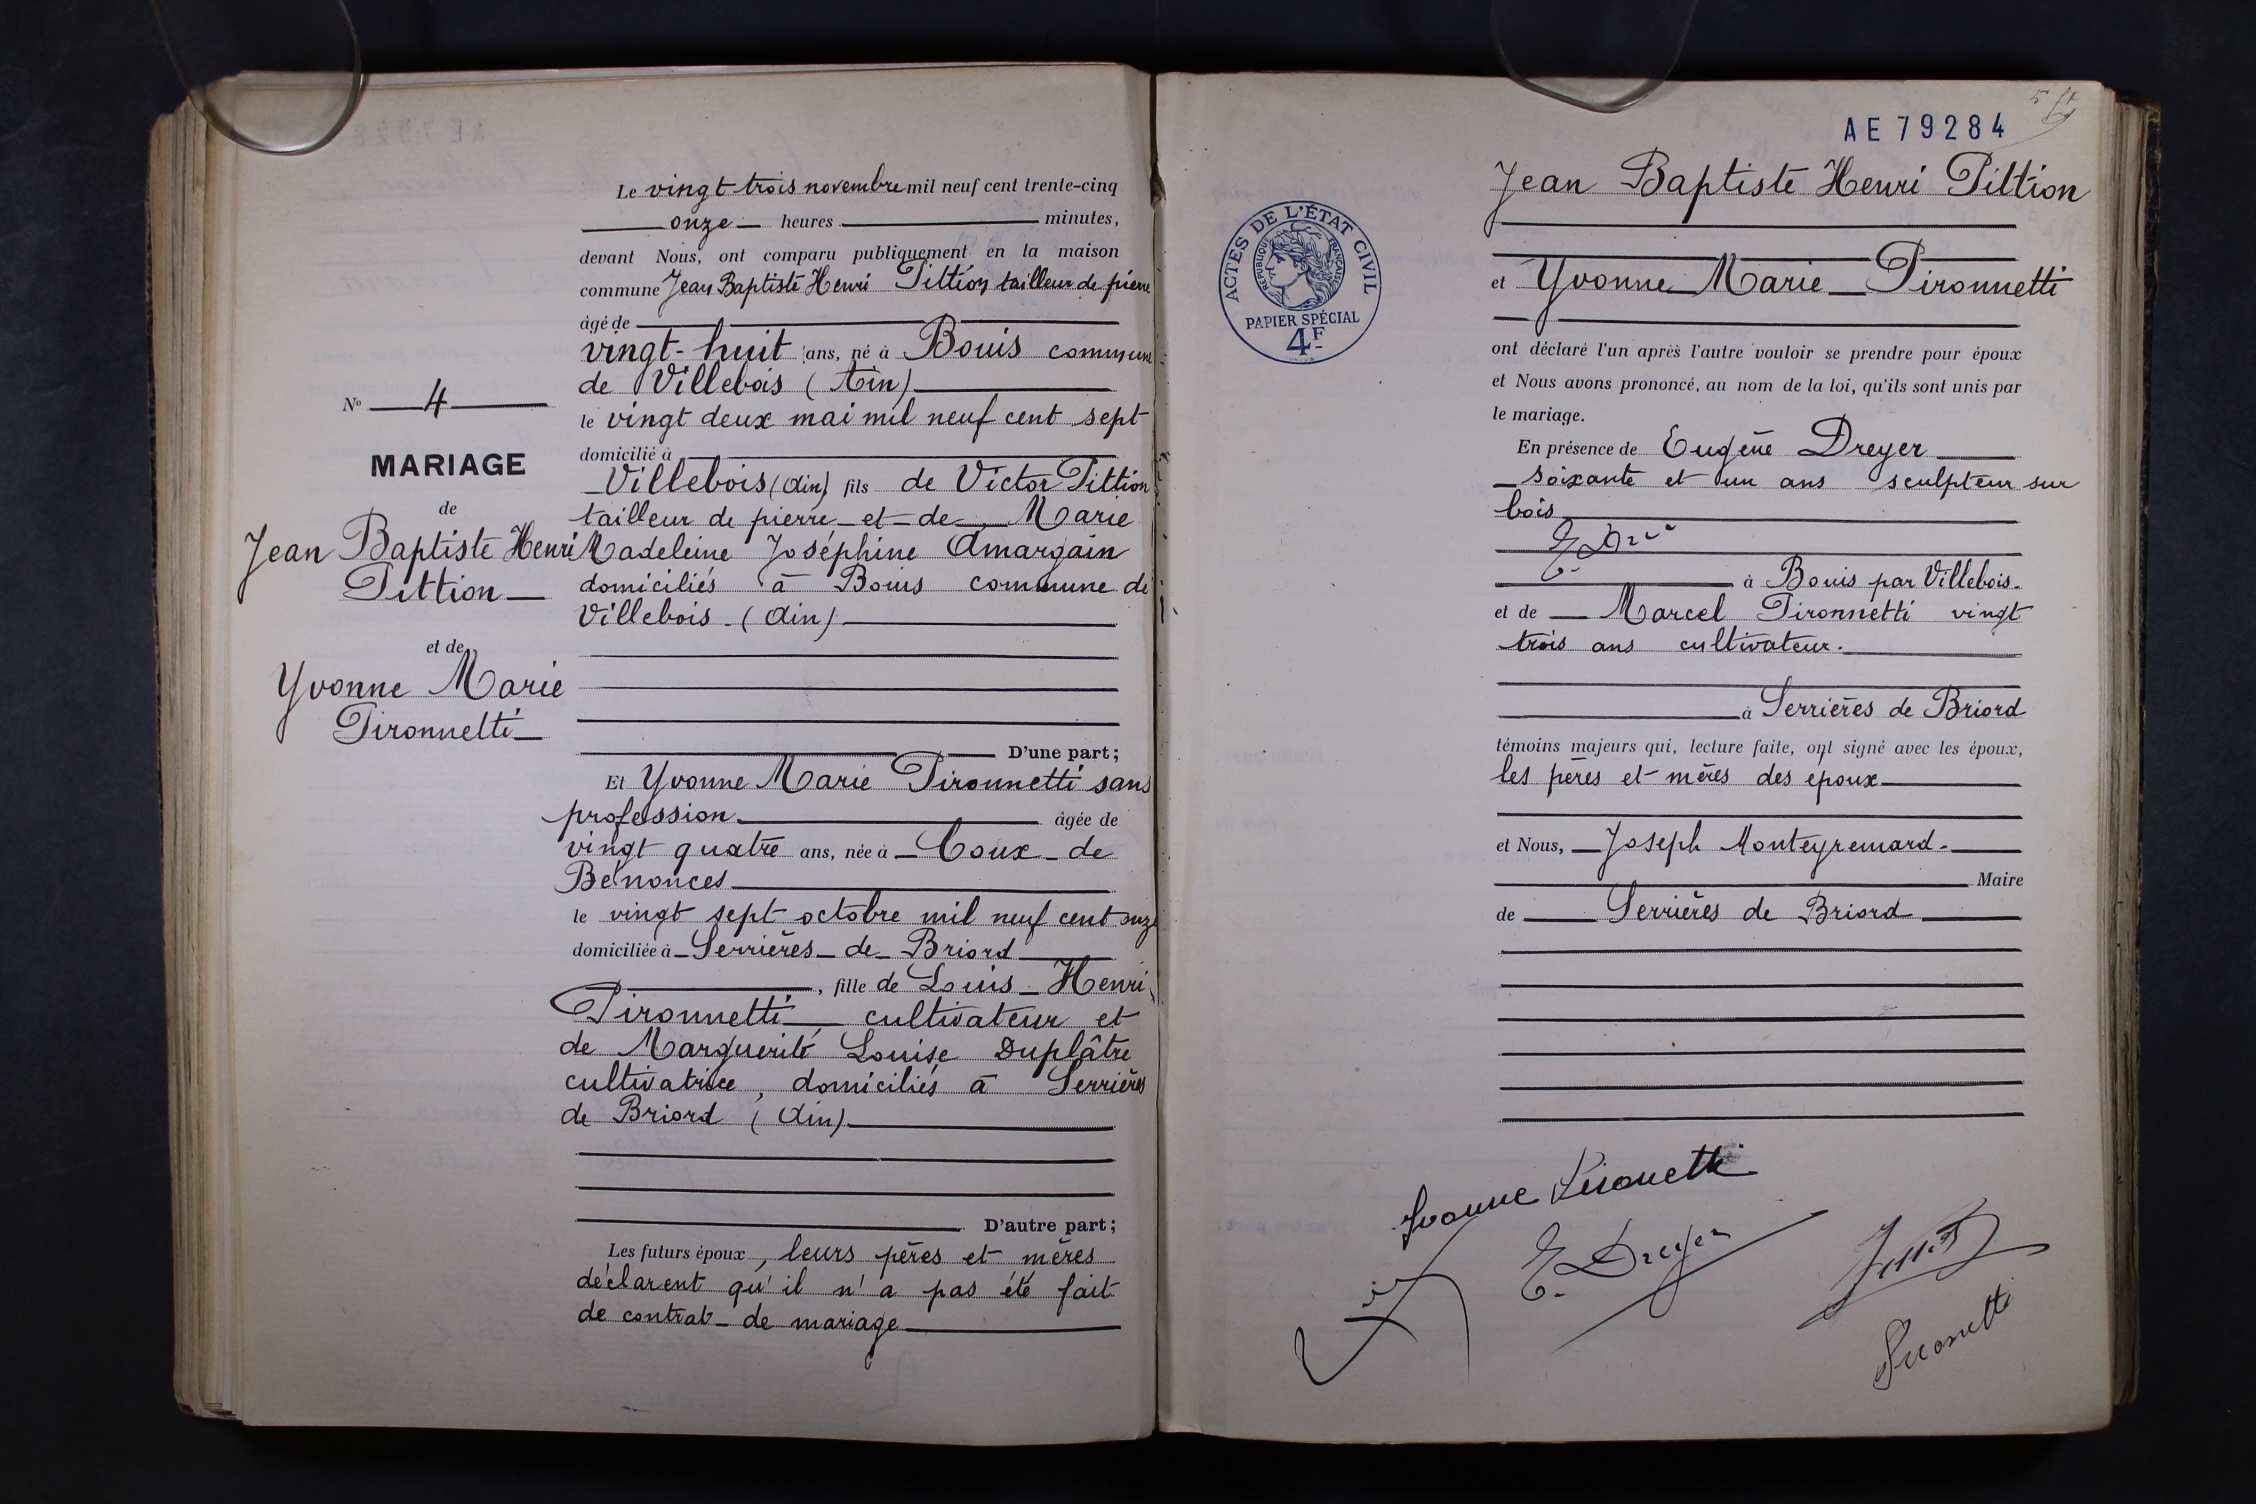 Le vingt trois novembre mil neuf cent trente-cinq
onze heures minutes,
devant Nous, ont comparu publiquement en la maison
commune Jean Baptiste Henri Pittion tailleur de pierre
âgé de
vingt-huit ans, né à Bouis commune
de Villebois (Ain)
le vingt deux mai mil neuf cent sept
domicilié à
Villebois (Ain) fils de Victor Pittion
tailleur de pierre et de Marie
Madeleine Joséphine Amargain
domiciliés à Bouis commune de
Villebois (Ain)
D'une part;
Et Yvonne Marie Pironnetti sans
profession âgée de
vingt quatre ans, née à Coux de
Bénonces
le vingt sept octobre mil neuf cent onze
domiciliée à Serrières de Briord
, fille de Louis Henri
Pironnetti cultivateur et
de Marguerite Louise Duplâtre
cultivatrice, domiciliés à Serrières
de Briord (Ain)
D'autre part;
Les futurs époux, leurs pères et mères
déclarent qu'il n'a pas été fait
de contrat de mariage
No 4
MARIAGE
de
Jean Baptiste Henri
Pittion
et de
Yvonne Marie
Pironnetti
AE79284
Jean Baptiste Henri Pittion
et Yvonne Marie Pironnetti
ont déclaré l'un après l'autre vouloir se prendre pour époux
et Nous avons prononcé, au nom de la loi, qu'ils sont unis par
le mariage.
En présence de Eugène Dreyer
soixante et un ans sculpteur sur
bois
à Bouis par Villebois.
et de Marcel Pironnetti vingt
trois ans cultivateur.
à Serrières de Briord
témoins majeurs qui, lecture faite, ont signé avec les époux,
les pères et mères des époux
et Nous, Joseph Monteyremard.
Maire
de Serrières de Briord
ACTES DE L'ÉTAT CIVIL
RÉPUBLIQUE FRANÇAISE
PAPIER SPÉCIAL
4F
Yvonne Pironetti
E. Dreyer
Pironetti